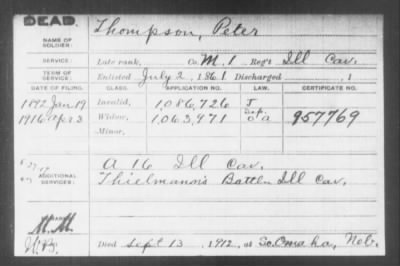 DEAD.
NAME OF SOLDIER: Thompson, Peter
SERVICE: Late rank, Co. M. 1 Reg't Ill Cav.
TERM OF SERVICE: Enlisted July 2, 1861 Discharged , 1
DATE OF FILING. CLASS. APPLICATION NO. LAW. CERTIFICATE NO.
1892 Jan 19 Invalid, 1,086,726
1916 Apr 3 Widow, 1,063,971 957769
Minor,
ADDITIONAL SERVICES: A 16 Ill Cav.
Thielmann's Battln Ill Cav.
M.M.
Died Sept 13, 1912, at So. Omaha, Neb.